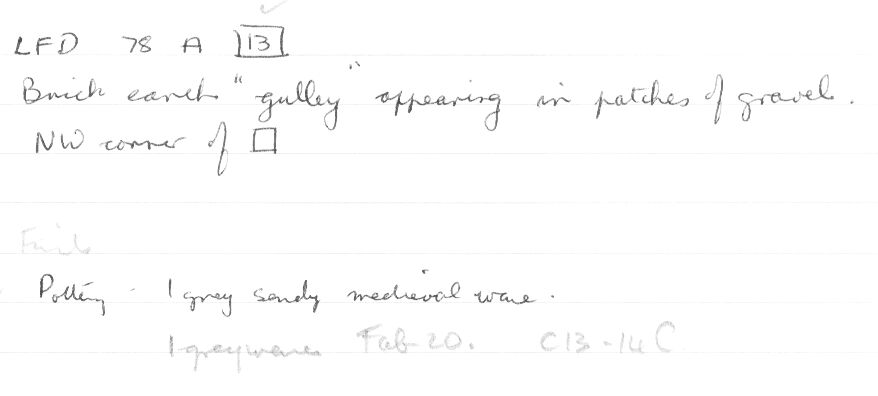 LFD 78 A 13
Brick earth "gulley" appearing in patches of gravel.
NW corner of □
Finds
Pottery - 1 grey sandy medieval ware.
1 greyware Fab 20. C13-14C